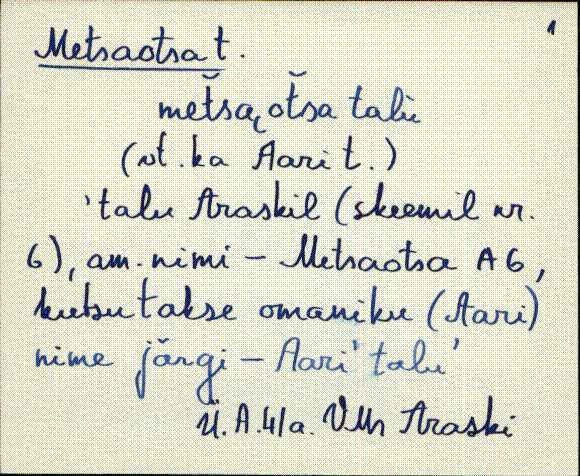 1
Metsaotsa t.
met̆sa, ot̆sa talù
(vt. ka Aari t.)
'talu Araskil (skeemil nr.
6), am. nimi – Metsaotsa A6,
kutsutakse omaniku (Aari)
nime järgi – Aari' talu'
Ü. A. 41a. VMr Araski